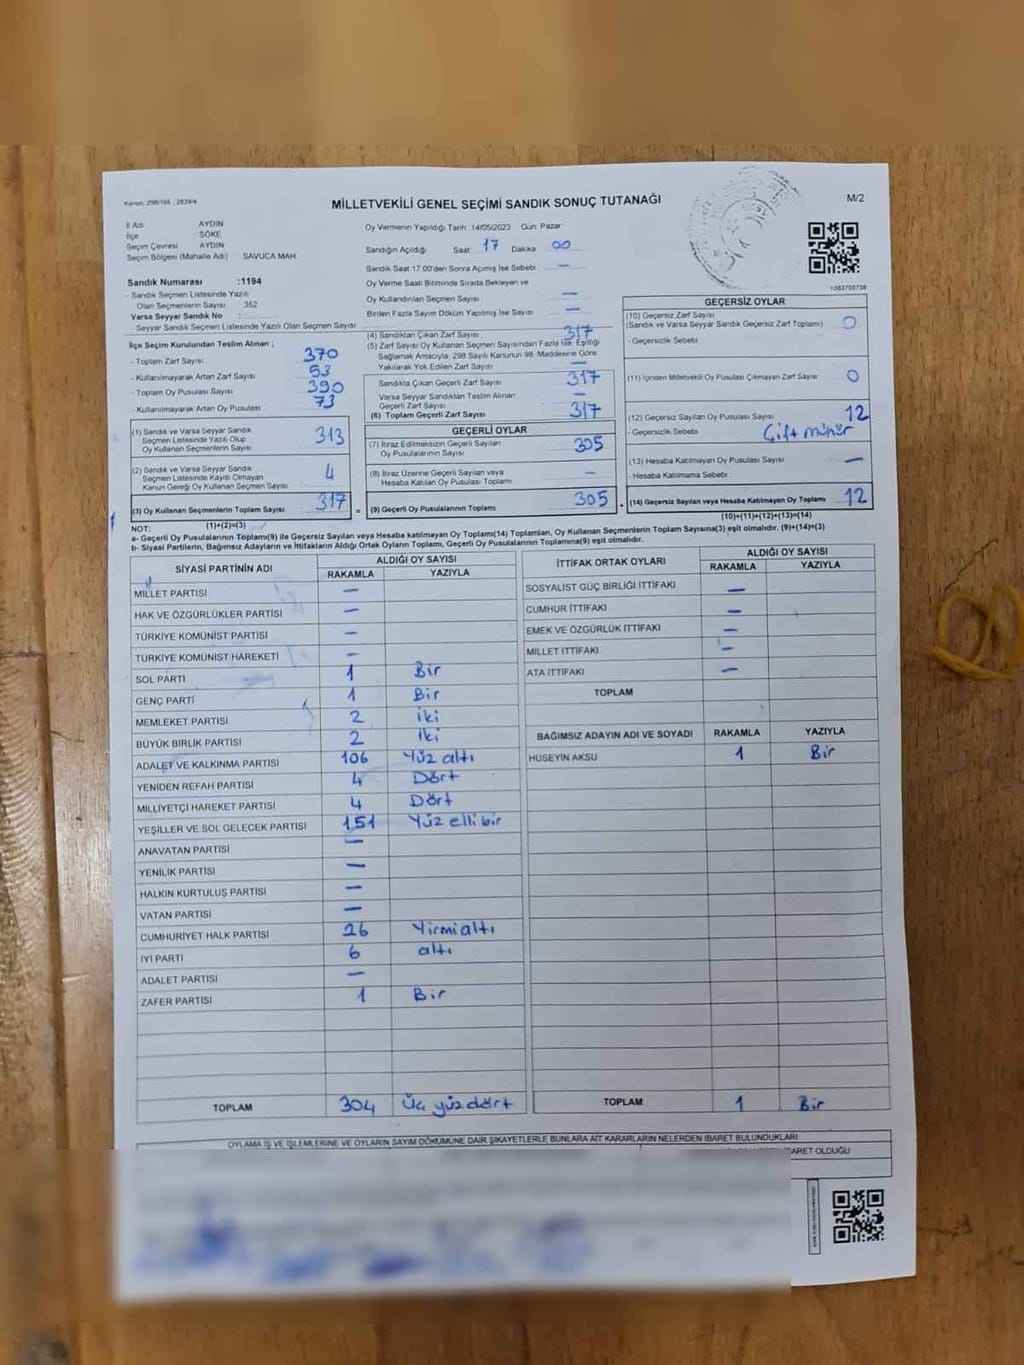 Kanun: 298/105 ; 2839/4
MİLLETVEKİLİ GENEL SEÇİMİ SANDIK SONUÇ TUTANAĞI
M/2
İl Adı AYDIN
İlçe SÖKE
Seçim Çevresi AYDIN
Seçim Bölgesi (Mahalle Adı) SAVUCA MAH
Sandık Numarası :1194
- Sandık Seçmen Listesinde Yazılı
Olan Seçmenlerin Sayısı : 352
Varsa Seyyar Sandık No :
- Seyyar Sandık Seçmen Listesinde Yazılı Olan Seçmen Sayısı
İlçe Seçim Kurulundan Teslim Alınan ;
- Toplam Zarf Sayısı 370
- Kullanılmayarak Artan Zarf Sayısı 53
- Toplam Oy Pusulası Sayısı 390
- Kullanılmayarak Artan Oy Pusulası 73
(1) Sandık ve Varsa Seyyar Sandık
Seçmen Listesinde Yazılı Olup
Oy Kullanan Seçmenlerin Sayısı 313
(2) Sandık ve Varsa Seyyar Sandık
Seçmen Listesinde Kaydı Olmayan
Kanun Gereği Oy Kullanan Seçmen Sayısı 4
(3) Oy Kullanan Seçmenlerin Toplam Sayısı 317 =
(1)+(2)=(3)
Oy Vermenin Yapıldığı Tarih :14/05/2023 Gün: Pazar
Sandığın Açıldığı Saat: 17 Dakika 00
Sandık Saat 17:00'den Sonra Açılmış İse Sebebi : —
Oy Verme Saati Bitiminde Sırada Bekleyen ve
Oy Kullandırılan Seçmen Sayısı —
Birden Fazla Sayım Döküm Yapılmış İse Sayısı —
(4) Sandıktan Çıkan Zarf Sayısı 317
(5) Zarf Sayısı Oy Kullanan Seçmen Sayısından Fazla İse, Eşitliği
Sağlamak Amacıyla, 298 Sayılı Kanunun 98. Maddesine Göre
Yakılarak Yok Edilen Zarf Sayısı —
Sandıkta Çıkan Geçerli Zarf Sayısı 317
Varsa Seyyar Sandıktan Teslim Alınan
Geçerli Zarf Sayısı —
(6) Toplam Geçerli Zarf Sayısı 317
GEÇERLİ OYLAR
(7) İtiraz Edilmeksizin Geçerli Sayılan
Oy Pusulalarının Sayısı 305
(8) İtiraz Üzerine Geçerli Sayılan veya
Hesaba Katılan Oy Pusulası Toplamı —
(9) Geçerli Oy Pusulalarının Toplamı 305 +
1083705738
GEÇERSİZ OYLAR
(10) Geçersiz Zarf Sayısı
(Sandık ve Varsa Seyyar Sandık Geçersiz Zarf Toplamı) 0
- Geçersizlik Sebebi
(11) İçinden Milletvekili Oy Pusulası Çıkmayan Zarf Sayısı 0
(12) Geçersiz Sayılan Oy Pusulası Sayısı 12
- Geçersizlik Sebebi Çift mühür
(13) Hesaba Katılmayan Oy Pusulası Sayısı —
- Hesaba Katılmama Sebebi
(14) Geçersiz Sayılan veya Hesaba Katılmayan Oy Toplamı 12
(10)+(11)+(12)+(13)=(14)
NOT:
a- Geçerli Oy Pusulalarının Toplamı(9) ile Geçersiz Sayılan veya Hesaba katılmayan Oy Toplamı(14) Toplamları, Oy Kullanan Seçmenlerin Toplam Sayısına(3) eşit olmalıdır. (9)+(14)=(3)
b- Siyasi Partilerin, Bağımsız Adayların ve İttifakların Aldığı Ortak Oyların Toplamı, Geçerli Oy Pusulalarının Toplamına(9) eşit olmalıdır.
SİYASİ PARTİNİN ADI ALDIĞI OY SAYISI
RAKAMLA YAZIYLA
MİLLET PARTİSİ —
HAK VE ÖZGÜRLÜKLER PARTİSİ —
TÜRKİYE KOMÜNİST PARTİSİ —
TÜRKİYE KOMÜNİST HAREKETİ —
SOL PARTİ 1 Bir
GENÇ PARTİ 1 Bir
MEMLEKET PARTİSİ 2 iki
BÜYÜK BİRLİK PARTİSİ 2 iki
ADALET VE KALKINMA PARTİSİ 106 Yüz altı
YENİDEN REFAH PARTİSİ 4 Dört
MİLLİYETÇİ HAREKET PARTİSİ 4 Dört
YEŞİLLER VE SOL GELECEK PARTİSİ 151 Yüz elli bir
ANAVATAN PARTİSİ —
YENİLİK PARTİSİ —
HALKIN KURTULUŞ PARTİSİ —
VATAN PARTİSİ —
CUMHURİYET HALK PARTİSİ 26 Yirmi altı
İYİ PARTİ 6 altı
ADALET PARTİSİ —
ZAFER PARTİSİ 1 Bir
TOPLAM 304 Üç yüz dört
İTTİFAK ORTAK OYLARI ALDIĞI OY SAYISI
RAKAMLA YAZIYLA
SOSYALİST GÜÇ BİRLİĞİ İTTİFAKI —
CUMHUR İTTİFAKI —
EMEK VE ÖZGÜRLÜK İTTİFAKI —
MİLLET İTTİFAKI —
ATA İTTİFAKI —
TOPLAM
BAĞIMSIZ ADAYIN ADI VE SOYADI RAKAMLA YAZIYLA
HÜSEYİN AKSU 1 Bir
TOPLAM 1 Bir
OYLAMA İŞ VE İŞLEMLERİNE VE OYLARIN SAYIM DÖKÜMÜNE DAİR ŞİKAYETLERLE BUNLARA AİT KARARLARIN NELERDEN İBARET BULUNDUKLARI
OLDUĞU